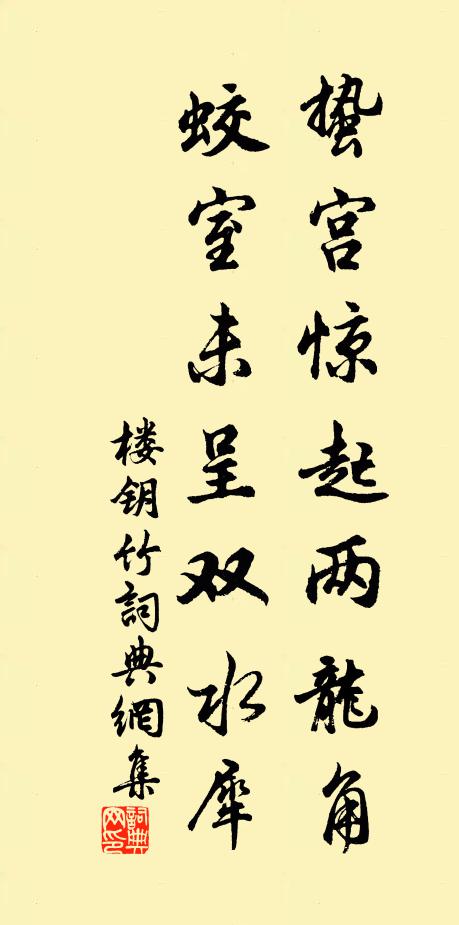 蛰宫惊起两龍角
蛟室未呈双水犀
楼钥竹詞典網集
詞典网印